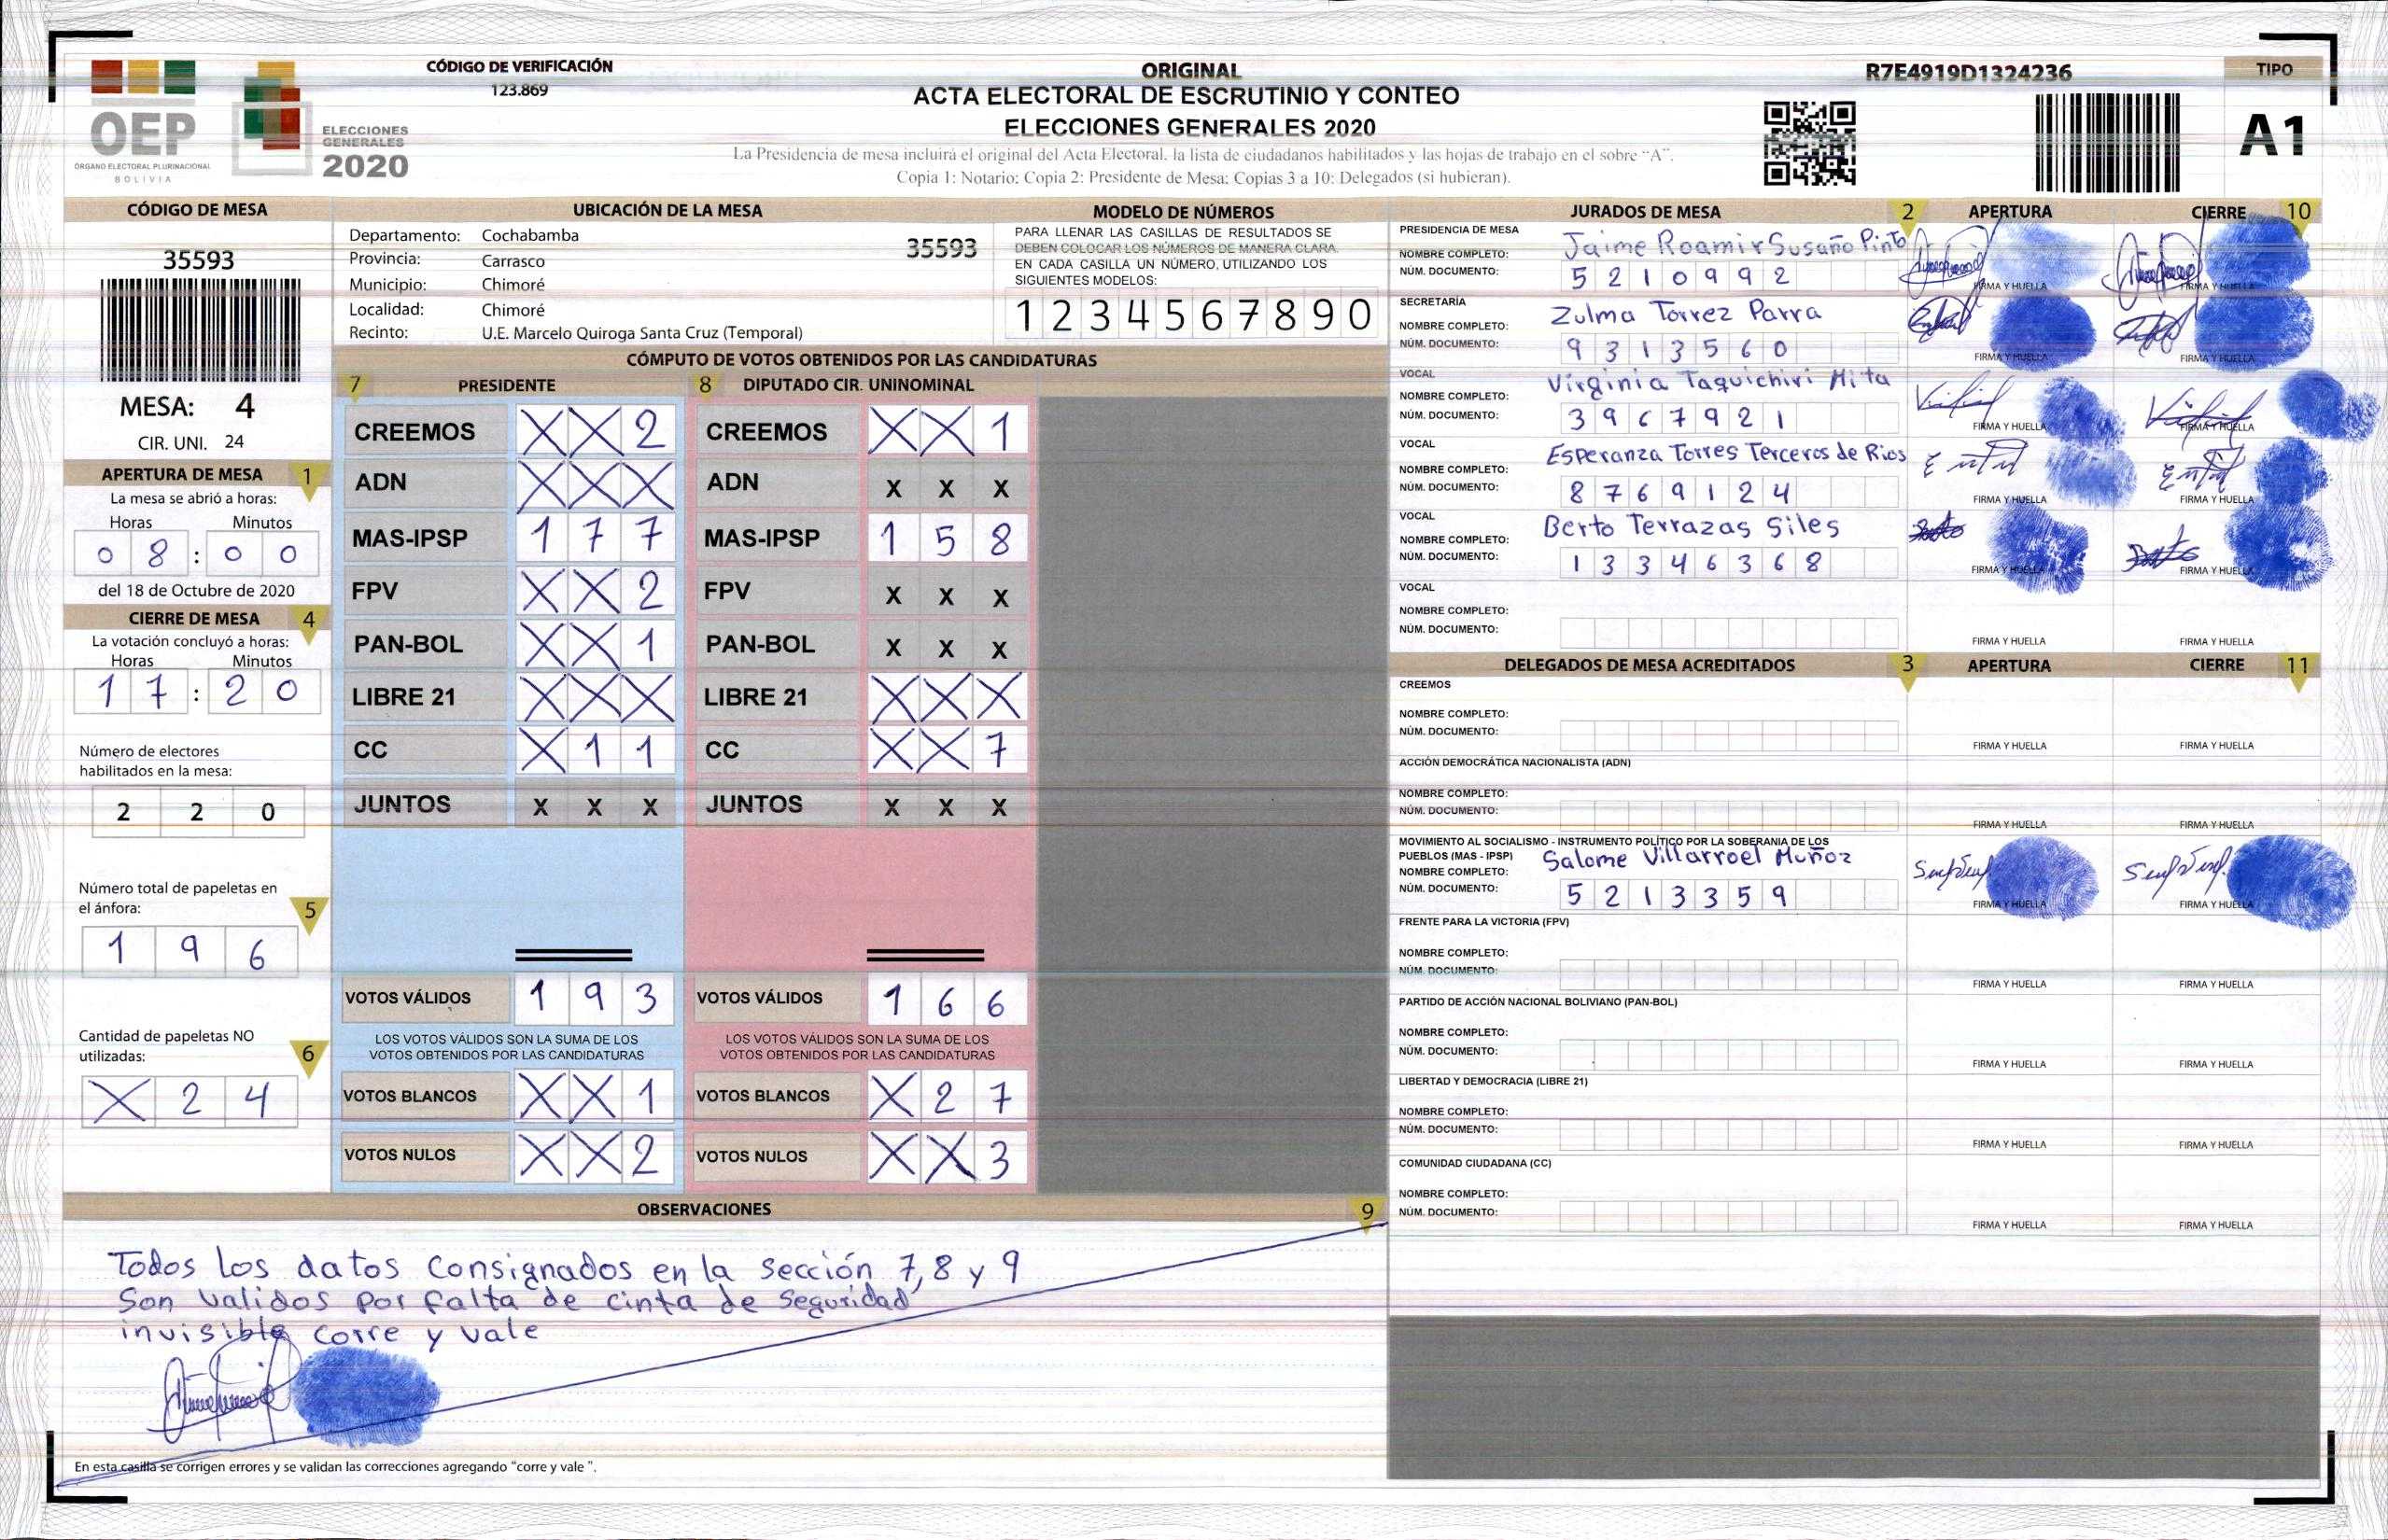 CÓDIGO DE VERIFICACIÓN
123.869
ORIGINAL
ACTA ELECTORAL DE ESCRUTINIO Y CONTEO
ELECCIONES GENERALES 2020
La Presidencia de mesa incluirá el original del Acta Electoral, la lista de ciudadanos habilitados y las hojas de trabajo en el sobre "A".
Copia 1: Notario; Copia 2: Presidente de Mesa; Copias 3 a 10: Delegados (si hubieran).
R7E4919D1324236
TIPO
A1
OEP
ÓRGANO ELECTORAL PLURINACIONAL
BOLIVIA
ELECCIONES
GENERALES
2020
CÓDIGO DE MESA
35593
MESA: 4
CIR. UNI. 24
APERTURA DE MESA 1
La mesa se abrió a horas:
Horas Minutos
0 8 : 0 0
del 18 de Octubre de 2020
CIERRE DE MESA 4
La votación concluyó a horas:
Horas Minutos
1 7 : 2 0
Número de electores
habilitados en la mesa:
2 2 0
Número total de papeletas en
el ánfora: 5
1 9 6
Cantidad de papeletas NO
utilizadas: 6
X 2 4
UBICACIÓN DE LA MESA
Departamento: Cochabamba
35593
Provincia: Carrasco
Municipio: Chimoré
Localidad: Chimoré
Recinto: U.E. Marcelo Quiroga Santa Cruz (Temporal)
MODELO DE NÚMEROS
PARA LLENAR LAS CASILLAS DE RESULTADOS SE
DEBEN COLOCAR LOS NÚMEROS DE MANERA CLARA.
EN CADA CASILLA UN NÚMERO, UTILIZANDO LOS
SIGUIENTES MODELOS:
1 2 3 4 5 6 7 8 9 0
CÓMPUTO DE VOTOS OBTENIDOS POR LAS CANDIDATURAS
7 PRESIDENTE 8 DIPUTADO CIR. UNINOMINAL
CREEMOS X X 2 CREEMOS X X 1
ADN X X X ADN X X X
MAS-IPSP 1 7 7 MAS-IPSP 1 5 8
FPV X X 2 FPV X X X
PAN-BOL X X 1 PAN-BOL X X X
LIBRE 21 X X X LIBRE 21 X X X
CC X 1 1 CC X X 7
JUNTOS X X X JUNTOS X X X
VOTOS VÁLIDOS 1 9 3 VOTOS VÁLIDOS 1 6 6
LOS VOTOS VÁLIDOS SON LA SUMA DE LOS LOS VOTOS VÁLIDOS SON LA SUMA DE LOS
VOTOS OBTENIDOS POR LAS CANDIDATURAS VOTOS OBTENIDOS POR LAS CANDIDATURAS
VOTOS BLANCOS X X 1 VOTOS BLANCOS X 2 7
VOTOS NULOS X X 2 VOTOS NULOS X X 3
OBSERVACIONES 9
Todos los datos consignados en la sección 7, 8 y 9
Son validos por falta de cinta de seguridad
invisible corre y vale
En esta casilla se corrigen errores y se validan las correcciones agregando "corre y vale ".
JURADOS DE MESA 2 APERTURA CIERRE 10
PRESIDENCIA DE MESA
NOMBRE COMPLETO: Jaime Roamir Susaño Pinto
NÚM. DOCUMENTO: 5 2 1 0 9 9 2
FIRMA Y HUELLA FIRMA Y HUELLA
SECRETARÍA
NOMBRE COMPLETO: Zulma Torrez Parra
NÚM. DOCUMENTO: 9 3 1 3 5 6 0
FIRMA Y HUELLA FIRMA Y HUELLA
VOCAL
NOMBRE COMPLETO: Virginia Taquichiri Mita
NÚM. DOCUMENTO: 3 9 6 7 9 2 1
FIRMA Y HUELLA FIRMA Y HUELLA
VOCAL
NOMBRE COMPLETO: Esperanza Torres Terceros de Rios
NÚM. DOCUMENTO: 8 7 6 9 1 2 4
FIRMA Y HUELLA FIRMA Y HUELLA
VOCAL
NOMBRE COMPLETO: Berto Terrazas Siles
NÚM. DOCUMENTO: 1 3 3 4 6 3 6 8
FIRMA Y HUELLA FIRMA Y HUELLA
VOCAL
NOMBRE COMPLETO:
NÚM. DOCUMENTO:
FIRMA Y HUELLA FIRMA Y HUELLA
DELEGADOS DE MESA ACREDITADOS 3 APERTURA CIERRE 11
CREEMOS
NOMBRE COMPLETO:
NÚM. DOCUMENTO:
FIRMA Y HUELLA FIRMA Y HUELLA
ACCIÓN DEMOCRÁTICA NACIONALISTA (ADN)
NOMBRE COMPLETO:
NÚM. DOCUMENTO:
FIRMA Y HUELLA FIRMA Y HUELLA
MOVIMIENTO AL SOCIALISMO - INSTRUMENTO POLÍTICO POR LA SOBERANIA DE LOS
PUEBLOS (MAS - IPSP)
NOMBRE COMPLETO: Salome Villarroel Muñoz
NÚM. DOCUMENTO: 5 2 1 3 3 5 9
FIRMA Y HUELLA FIRMA Y HUELLA
FRENTE PARA LA VICTORIA (FPV)
NOMBRE COMPLETO:
NÚM. DOCUMENTO:
FIRMA Y HUELLA FIRMA Y HUELLA
PARTIDO DE ACCIÓN NACIONAL BOLIVIANO (PAN-BOL)
NOMBRE COMPLETO:
NÚM. DOCUMENTO:
FIRMA Y HUELLA FIRMA Y HUELLA
LIBERTAD Y DEMOCRACIA (LIBRE 21)
NOMBRE COMPLETO:
NÚM. DOCUMENTO:
FIRMA Y HUELLA FIRMA Y HUELLA
COMUNIDAD CIUDADANA (CC)
NOMBRE COMPLETO:
NÚM. DOCUMENTO:
FIRMA Y HUELLA FIRMA Y HUELLA